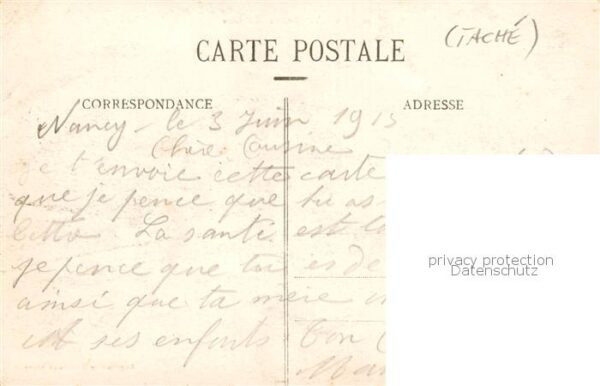 (TACHÉ)
CARTE POSTALE
CORRESPONDANCE
ADRESSE
Nancy - le 3 Juin 1915
Chère Cousine
Je t'envoie cette carte
que je pence que tu as
La santé est
je pence que tu es de
ainsi que ta mère
et ses enfants Ton
privacy protection
Datenschutz